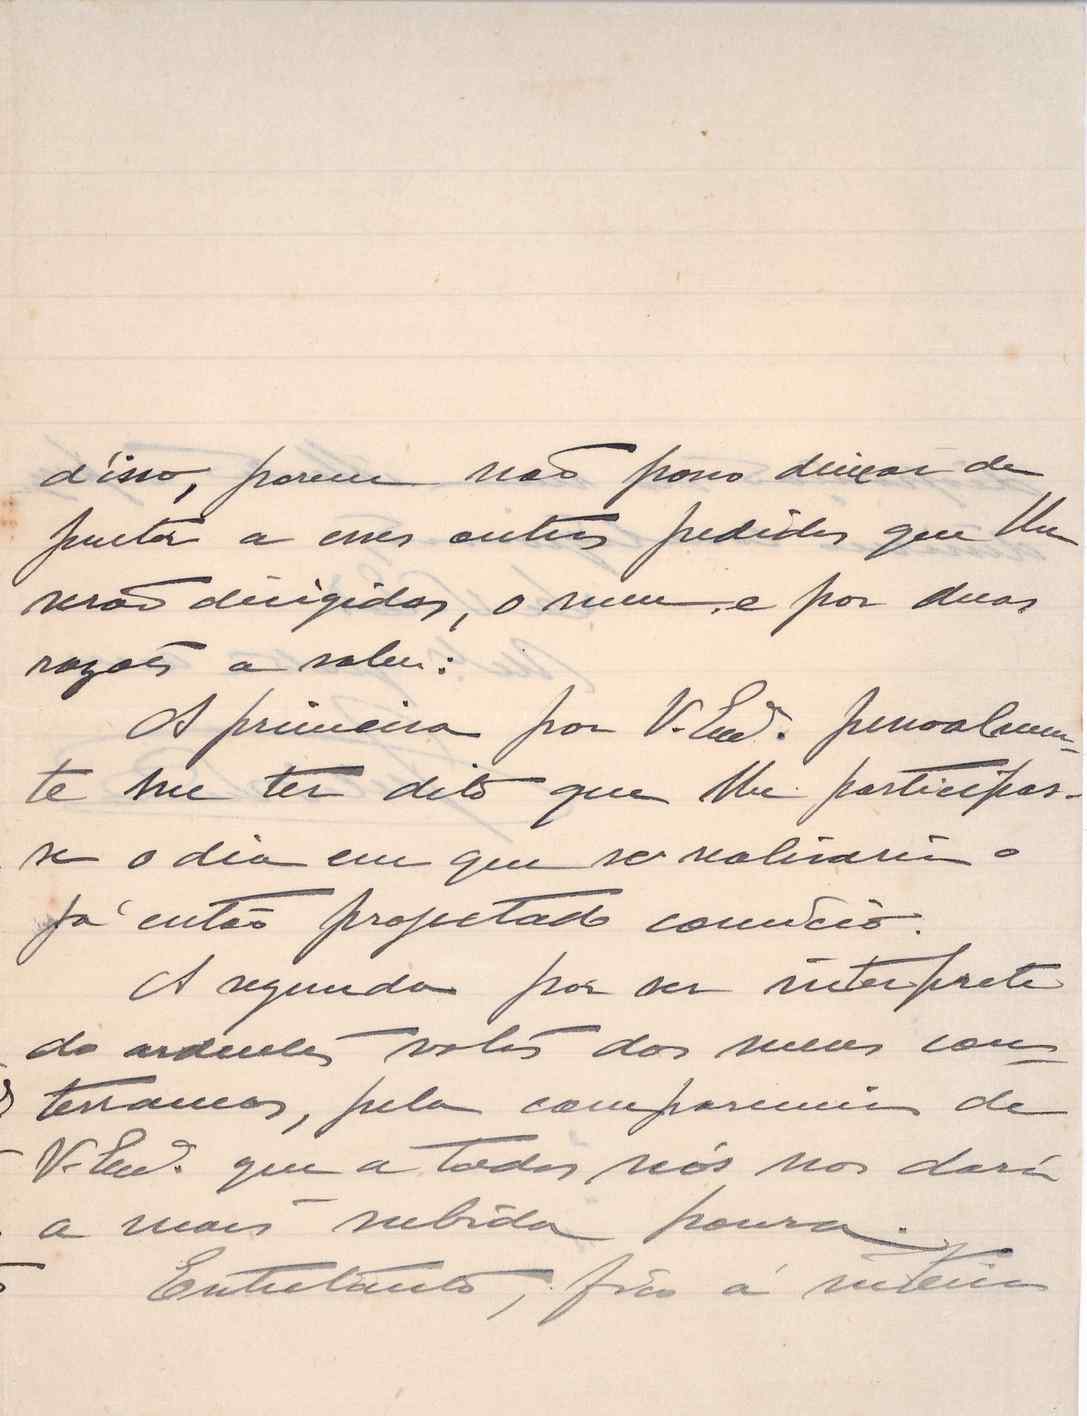 d'isso, porem não posso deixar de
juntar a esses outros pedidos que lhe
serão dirigidos, o meu e por duas
razões a saber:
A primeira por V. Exª. pessoalmen-
te me ter dito que lhe participas-
se o dia em que se realisaria o
já então projectado comicio.
A segunda por ser interprete
do ardentes votos dos meus con-
terraneos, pela comparencia de
V. Exª. que a todos nós nos dará
a mais subida honra.
Entretanto, fico á inteira